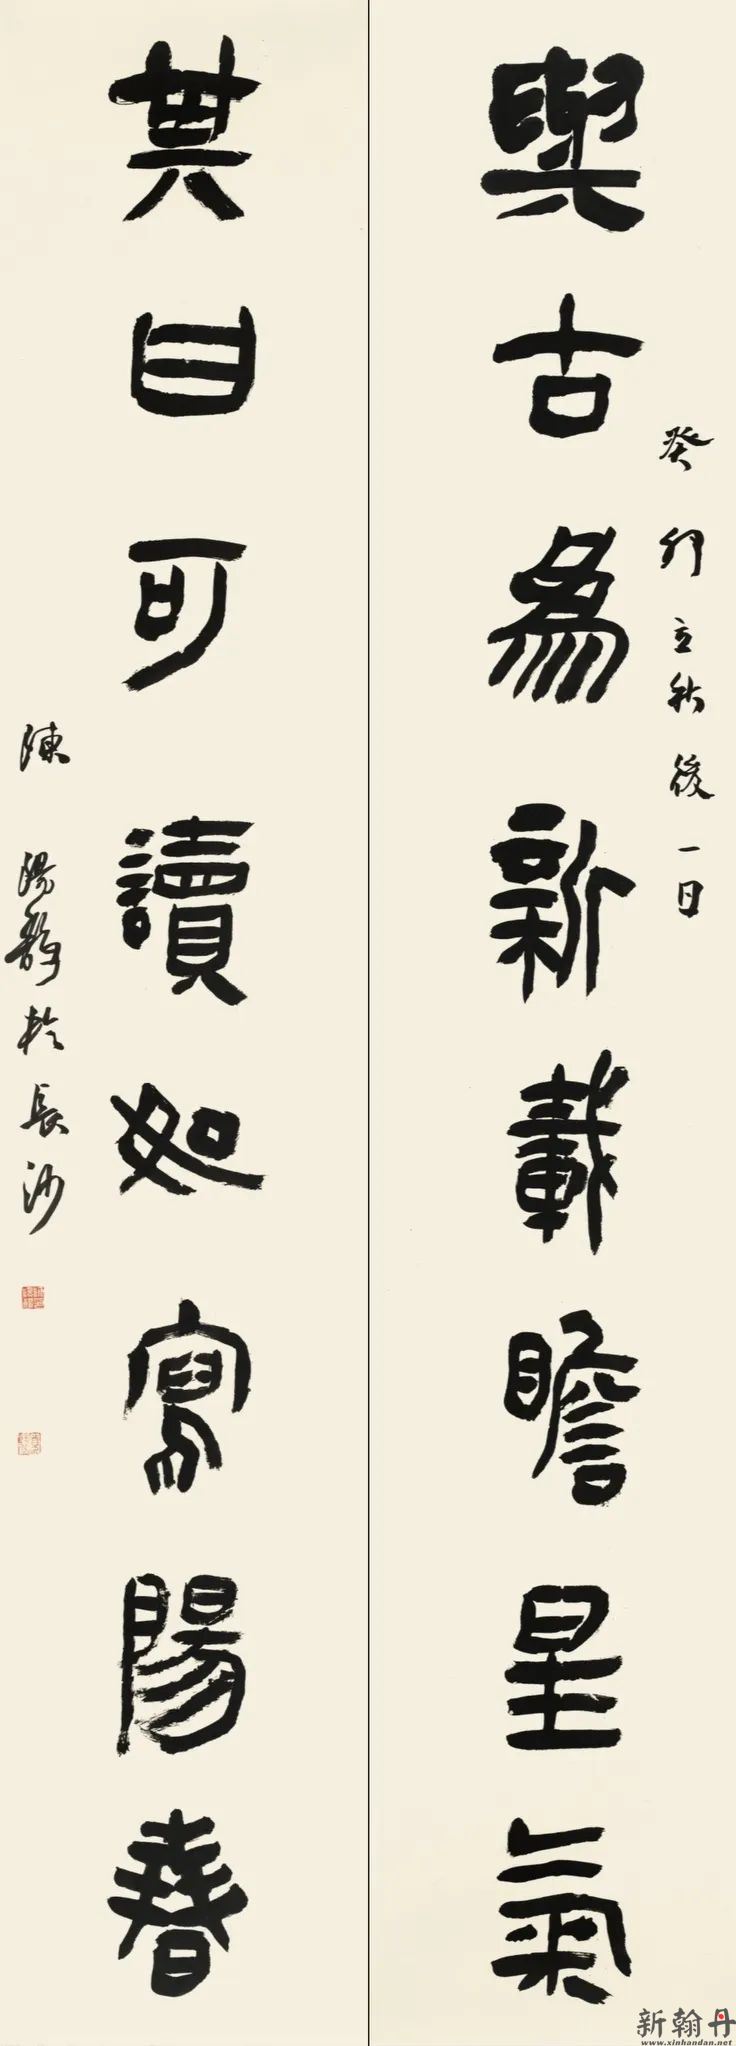 與古為新載瞻星氣
癸卯立秋後一日
其曰可讀如寫陽春
陳陽靜於長沙
新翰丹
www.xinhandan.net